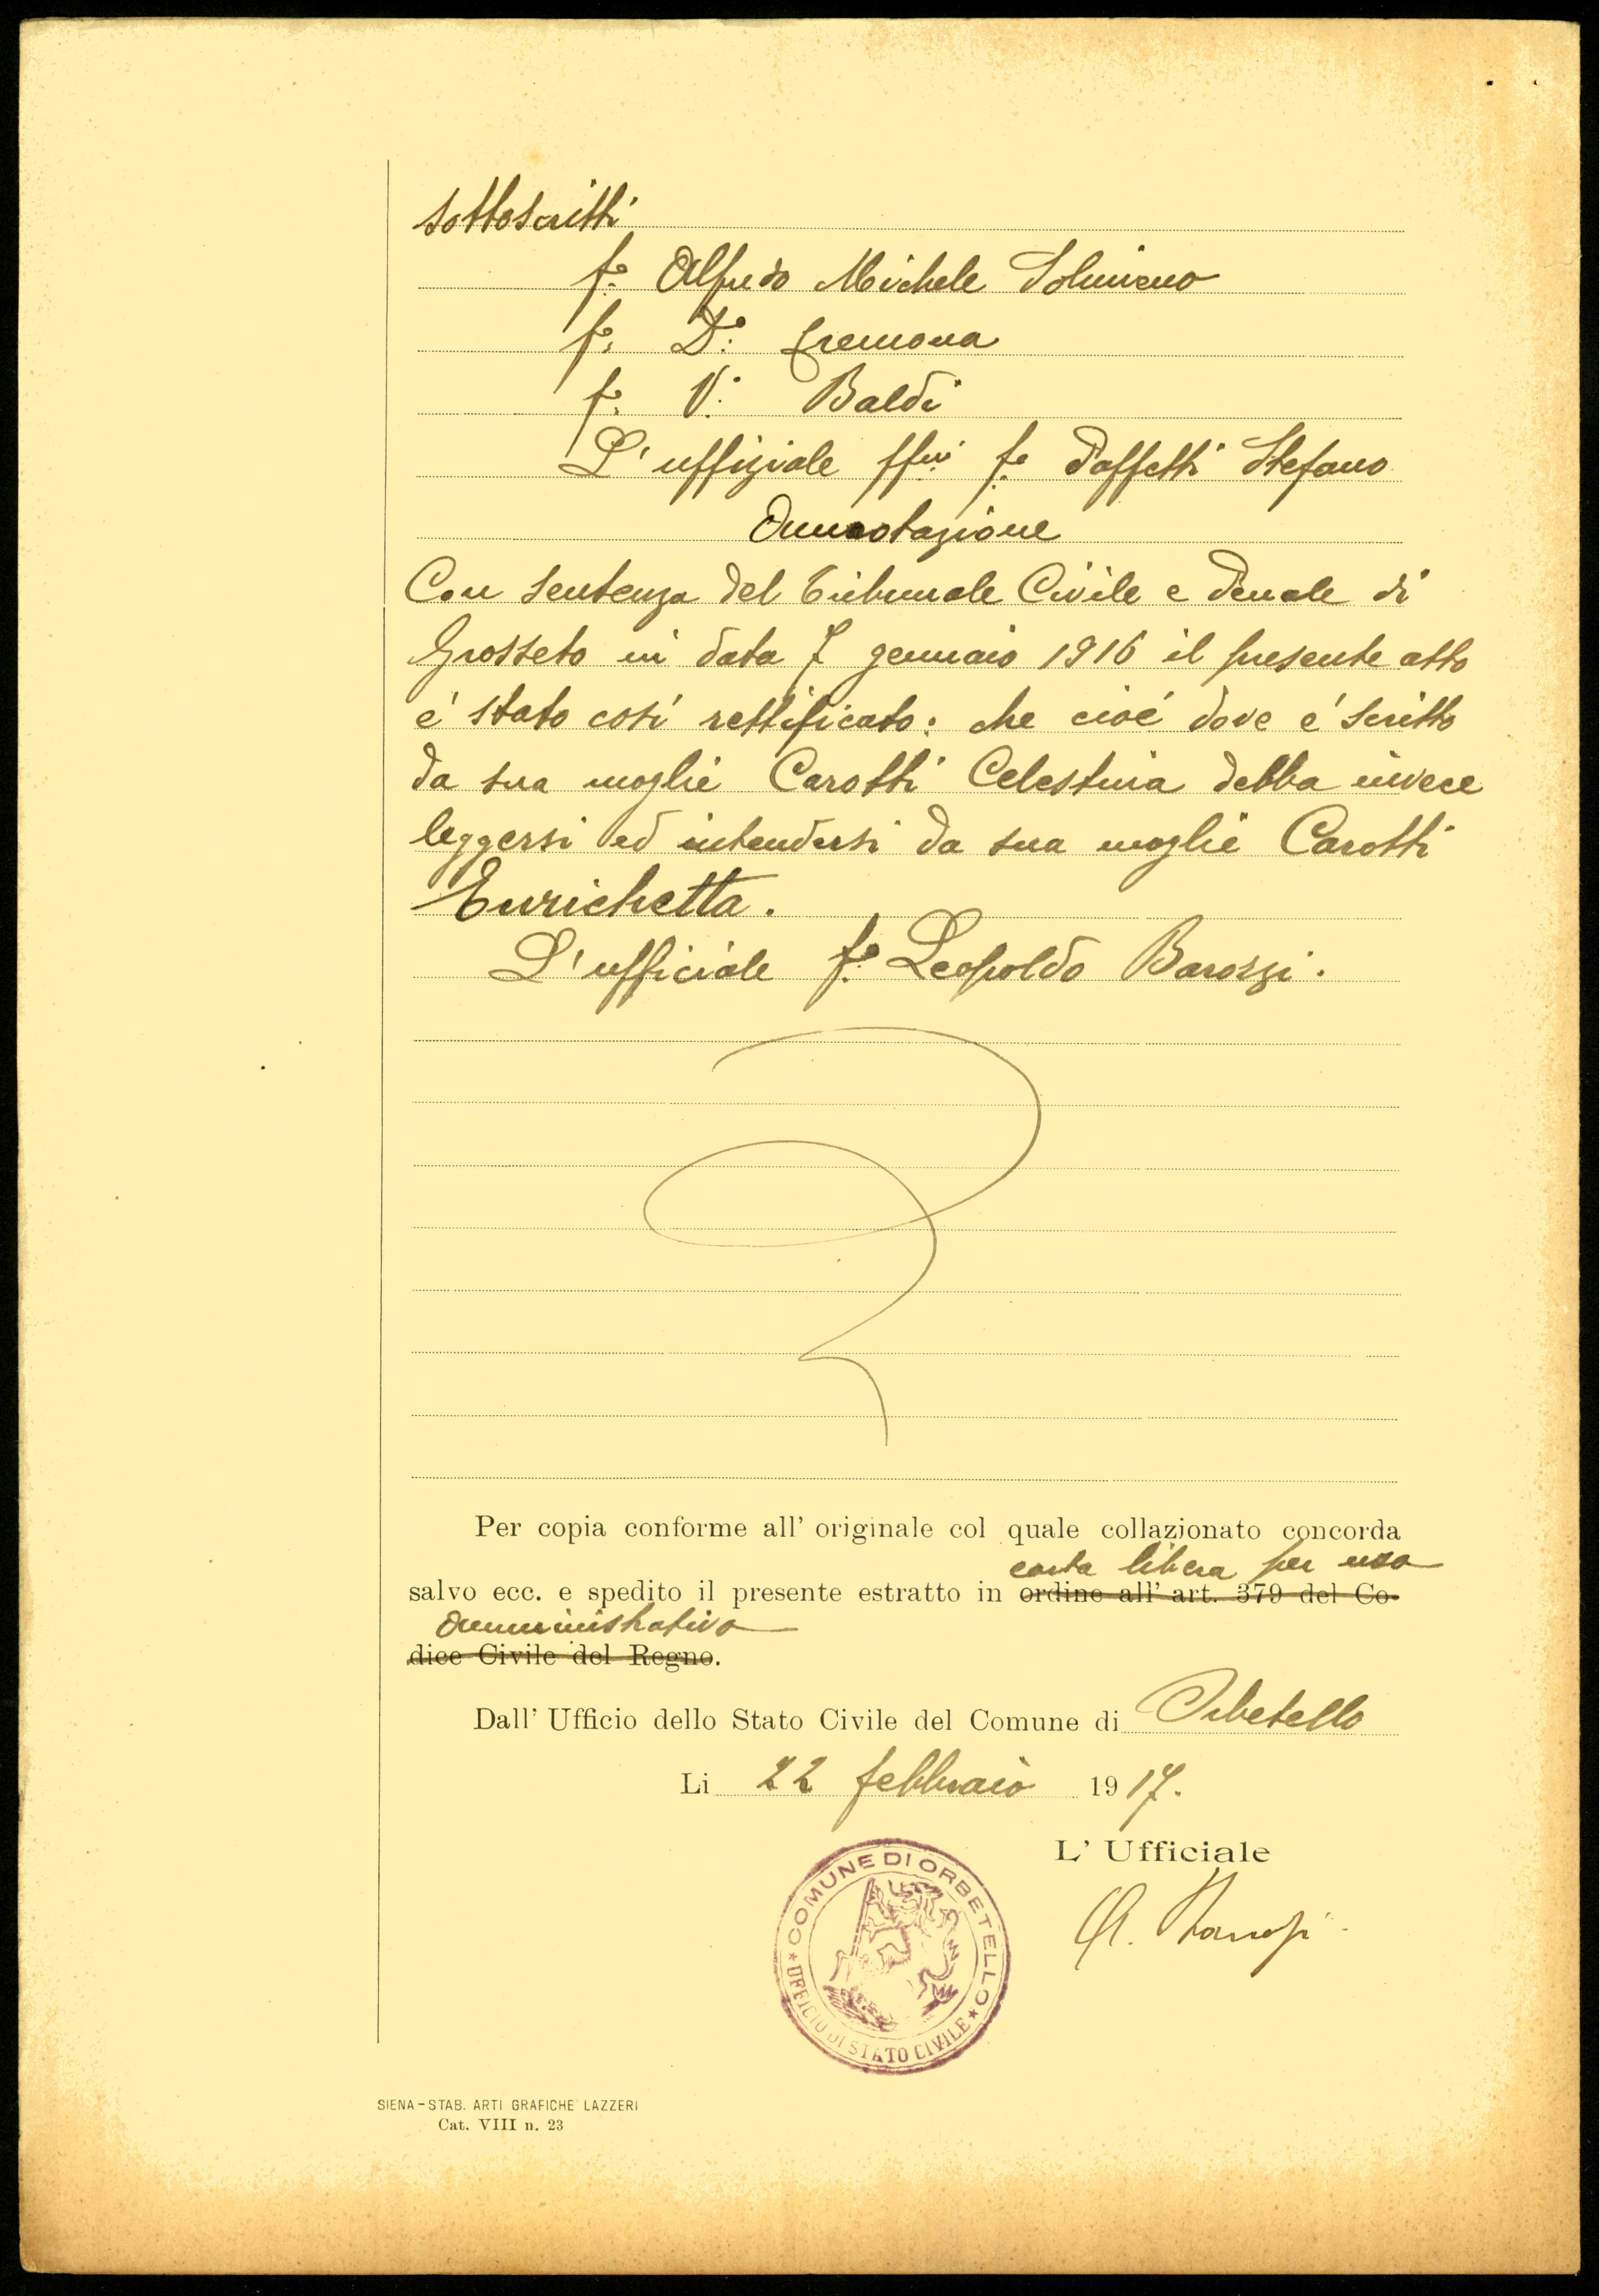 sottoscritti
f.o Alfredo Michele Solimeno
f.o D.o Cremona
f.o V. Baldi
L'uffiziale ff.ni f.o Paffetti Stefano
Annotazione
Con sentenza del Tribunale Civile e Penale di
Grosseto in data 7 gennaio 1916 il presente atto
é stato così rettificato: che cioé dove é scritto
da sua moglie Carotti Celestina debba invece
leggersi ed intendersi da sua moglie Carotti
Enrichetta.
L'ufficiale f.o Leopoldo Barozzi.
Per copia conforme all' originale col quale collazionato concorda
carta libera per uso
salvo ecc. e spedito il presente estratto in ordine all' art. 379 del Co-
amministrativo
dice Civile del Regno.
Dall' Ufficio dello Stato Civile del Comune di Orbetello
Li 22 febbraio 1917.
L' Ufficiale
COMUNE DI ORBETELLO
UFFICIO DI STATO CIVILE
SIENA - STAB. ARTI GRAFICHE LAZZERI
Cat. VIII n. 23